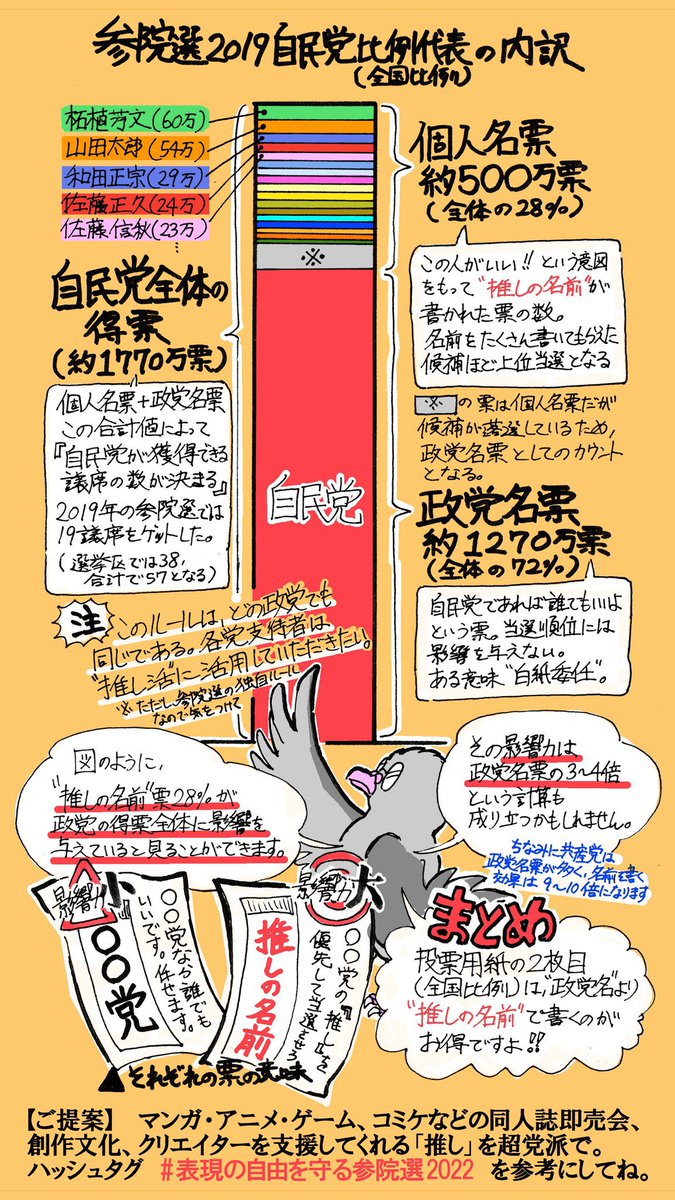 参院選2019自民党比例代表の内訳
(全国比例)
柘植芳文(60万)
山田太郎(54万)
和田正宗(29万)
佐藤正久(24万)
佐藤信秋(23万)
⋮
自民党全体の
得票
(約1770万票)
個人名票+政党名票
この合計値によって
『自民党が獲得できる
議席の数が決まる』
2019年の参院選では
19議席をゲットした。
(選挙区では38,
合計で57となる)
※
自民党
個人名票
約500万票
(全体の28%)
この人がいい!!という意図
をもって"推しの名前"が
書かれた票の数。
名前をたくさん書いてもらえた
候補ほど上位当選となる
※の票は個人名票だが
候補が落選しているため,
政党名票としてのカウント
となる。
政党名票
約1270万票
(全体の72%)
自民党であれば誰でもいいよ
という票。当選順位には
影響を与えない。
ある意味"白紙委任"。
注
このルールは,どの政党でも
同じである。各党支持者は
"推し活"に活用していただきたい。
※ただし参院選の独自ルール
なので気をつけて
図のように,
"推しの名前"票28%が
政党の得票全体に影響を
与えていると見ることができます。
その影響力は
政党名票の3~4倍
という計算も
成り立つかもしれません。
ちなみに共産党は
政党名票が多く,名前を書く
効果は9~10倍になります
影響力小
〇〇党なら誰でも
いいです。任せます。
〇〇党
影響力大
〇〇党の『推し』を
優先して当選させろ
推しの名前
▲それぞれの票の意味
まとめ
投票用紙の2枚目
(全国比例)は"政党名"より
"推しの名前"で書くのが
お得ですよ!!
【ご提案】 マンガ・アニメ・ゲーム、コミケなどの同人誌即売会、
創作文化、クリエイターを支援してくれる「推し」を超党派で。
ハッシュタグ #表現の自由を守る参院選2022 を参考にしてね。